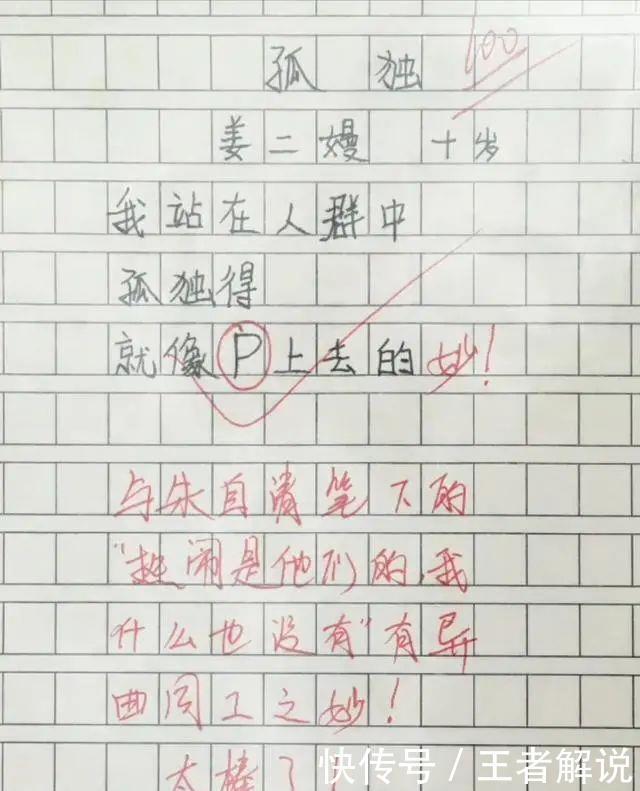 孤独 100
姜二嫚 十岁
我站在人群中
孤独得
就像P上去的 妙!
与朱自清笔下的
"热闹是他们的,我
什么也没有"有异
曲同工之妙!
太棒了!
快传号/王者解说